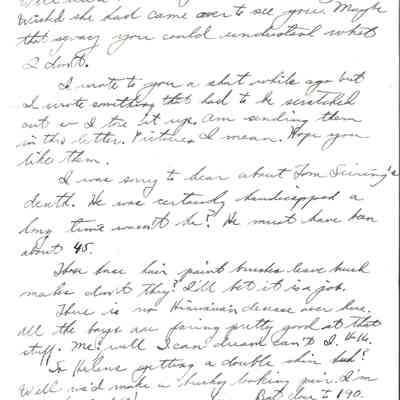 Wish'd she had came over to see you. Maybe
that way you could understand what
I don't.
I wrote to you a short while ago but
I wrote somthing that had to be scratched
out so I tore it up, am sending them
in this letter. Pictures I mean. Hope you
like them.
I was sorry to hear about Tom
death. He was certainly handicapped a
long time wasn't he? He must have been
about 45.
These base hair paint brushes leave brush
marks don't they? I'll bet it is a job.
There is no Hawaiian disease over here.
All the boys are faring pretty good at that
stuff. Me? well I can dream can't I. Huh.
So Helens getting a double chin huh?
Well we'd make a husky looking pair. I'm
But close to 190.